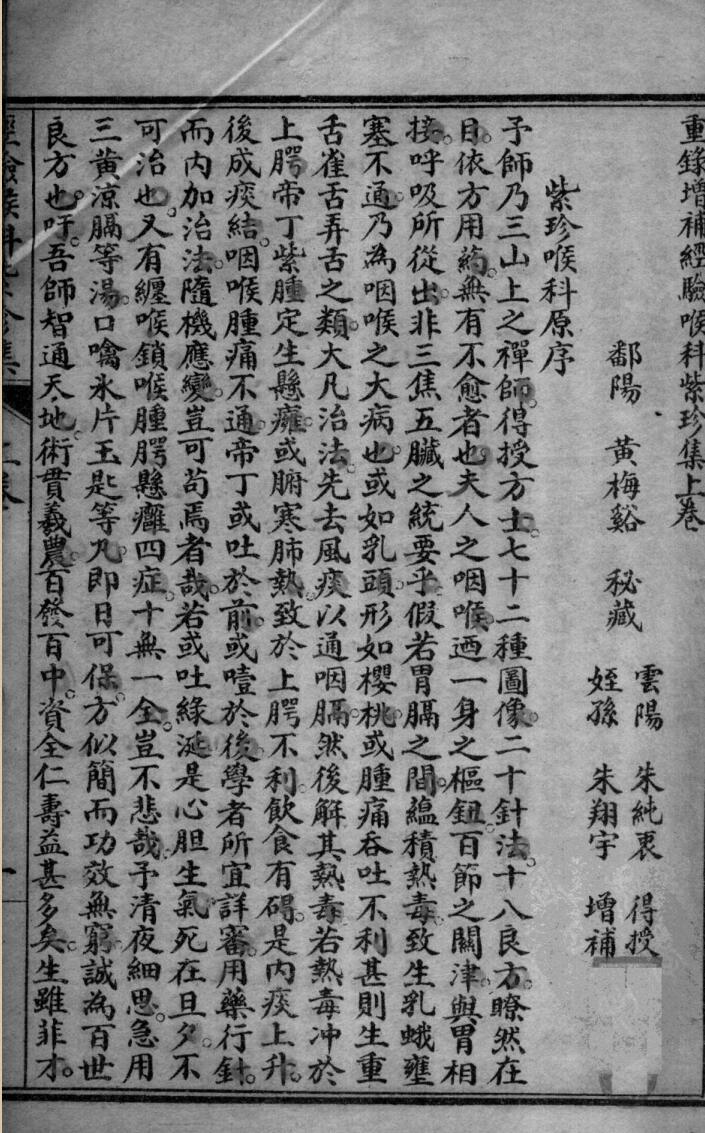 重錄增補經驗喉科紫珍集上卷
鄱陽 黃梅谿 秘藏
雲陽 朱純衷 得授
姪孫 朱翔宇 增補
紫珍喉科原序
予師乃三山上之禪師得授方士七十二種圖像二十針法十八良方瞭然在
目依方用葯無有不愈者也夫人之咽喉迺一身之樞鈕百節之關津與胃相
接呼吸所從出非三焦五臟之統要乎假若胃膈之間蘊積熱毒致生乳蛾壅
塞不通乃為咽喉之大病也或如乳頭形如櫻桃或腫痛吞吐不利甚則生重
舌雀舌弄舌之類大凡治法先去風痰以通咽膈然後解其熱毒若熱毒冲於
上腭帝丁紫腫定生懸癰或腑寒肺熱致於上腭不利飲食有碍是內痰上升
後成痰結咽喉腫痛不通帝丁或吐於前或噎於後學者所宜詳審用藥行針
而內加治法隨機應變豈可苟焉者哉若或吐綠涎是心胆生氣死在旦夕不
可治也又有纏喉鎖喉腫腭懸癰四症十無一全豈不悲哉予清夜細思急用
三黃涼膈等湯口噙氷片玉匙等凡即日可保方似簡而功效無窮誠為百世
良方也吁吾師智通天地術貫義農百發百中資全仁壽益甚多矣生雖非才